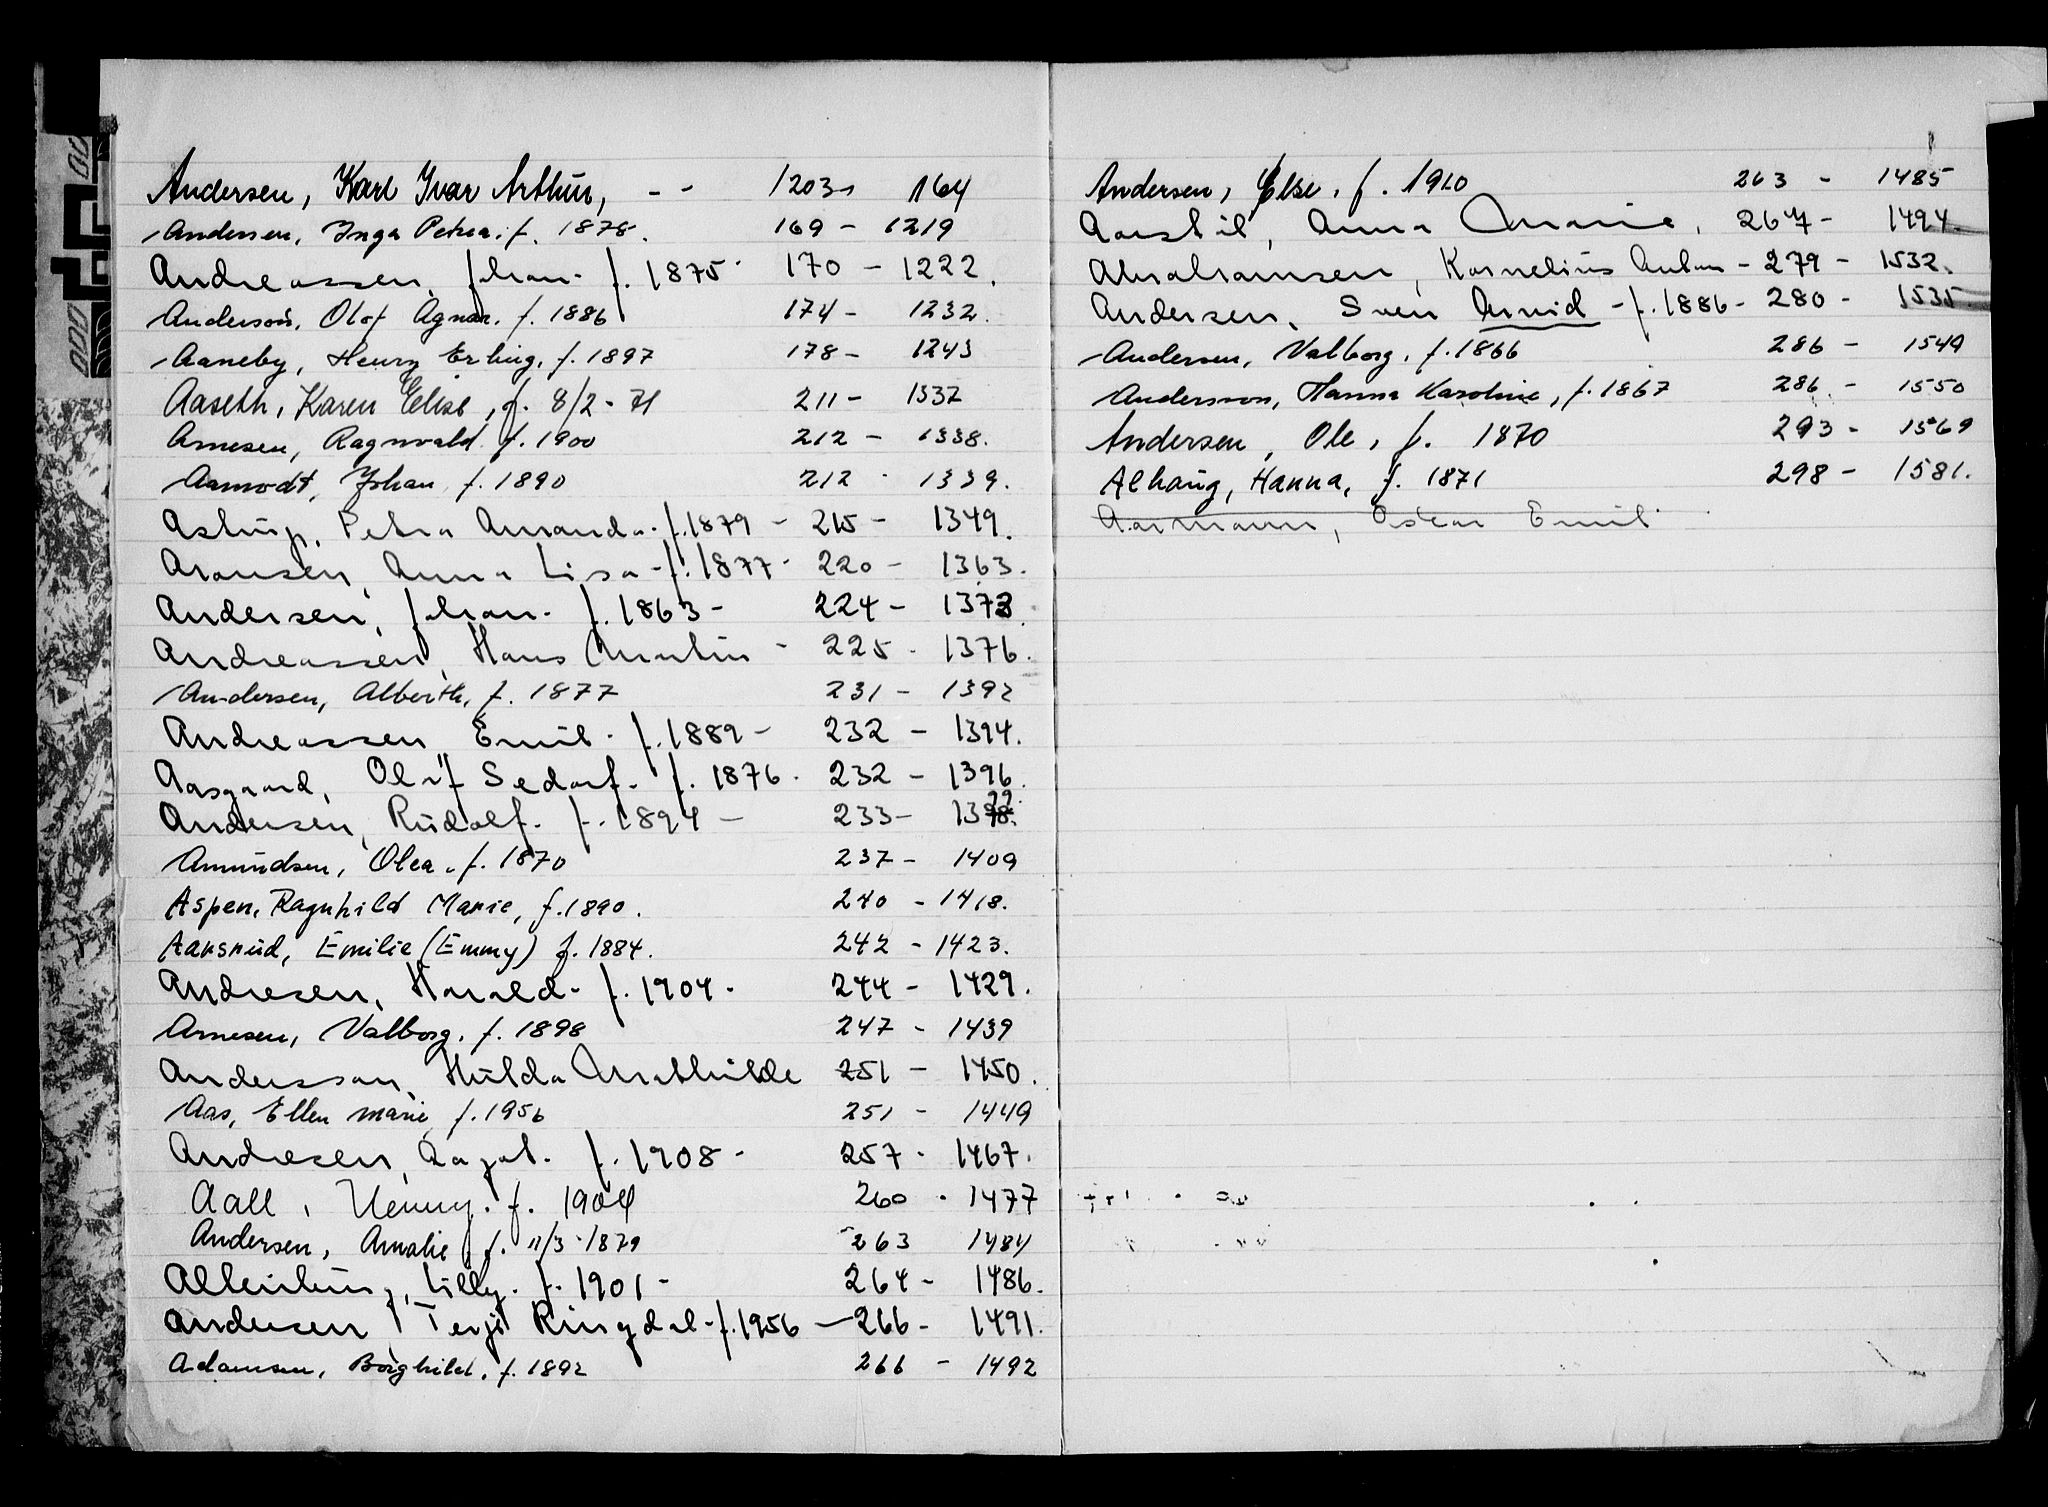 Andersen, Karl Ivar Arthur, - - 1203 164
Andersen, Inga Petrea. f. 1878. 169 - 1219
Andreassen, Johan. f. 1875 170 - 1222.
Anderson, Olof Agnar. f. 1886 174 - 1232.
Aaneby, Henry Erling, f. 1897 178 - 1243
Aaseth, Karen Elise, f. 8/2 - 71 211 - 1337
Arnesen, Ragnvald. f. 1900 212 - 1338.
Aamodt, Johan f. 1890 212 - 1339.
Astrup, Petra Amanda. f. 1879 - 215 - 1349.
Aronsen, Anna Lisa - f. 1877 - 220 - 1363.
Andersen, Johan. f. 1863 - 224 - 1373
Andreassen, Hans Martin - 225 - 1376.
Andersen, Alberth, f. 1877 231 - 1392
Andreassen Emil. f. 1889 - 232 - 1394.
Aasgaard, Olaf Sedorf. f. 1876. 232 - 1396.
Andersen, Rudolf. f. 1894 - 233 -
Amundsen, Olea. f. 1870 237 - 1409
Aspen, Ragnhild Marie, f. 1890. 240 - 1418.
Aarsrud, Emilie (Emmy) f. 1884. 242 - 1423.
Andresen, Harald - f. 1904. 244 - 1429.
Arnesen, Valborg, f. 1898 247 - 1439
Andersson, Hulda Mathilde 251 - 1450.
Aas, Ellen Marie, f. 1956 251 - 1449
Andresen, Aagot. f. 1908 - 257 - 1467.
Aall, Henny. f. 260 - 1477
Andersen, Amalie, f. 11/3 - 1879 263 1484
Lilly. f. 1901 - 264 - 1486.
Andersen, Terje Ringdal - f. 1956 - 266 - 1491.
Adamsen, Borghild, f. 1892 266 - 1492
Andersen, Else, f. 1910 263 - 1485
Anna Marie, 267 - 1494.
Abrahamsen, Kornelius Anton - 279 - 1532.
Andersen, Sven Arvid - f. 1886 - 280 - 1535.
Andersen, Valborg, f. 1866 286 - 1549
Andersson, Hanna Karoline, f. 1867 286 - 1550
Andersen, Ole, f. 1870 293 - 1569
Alhaug, Hanna, f. 1871 298 - 1581.
Aarmann, Oskar Emil